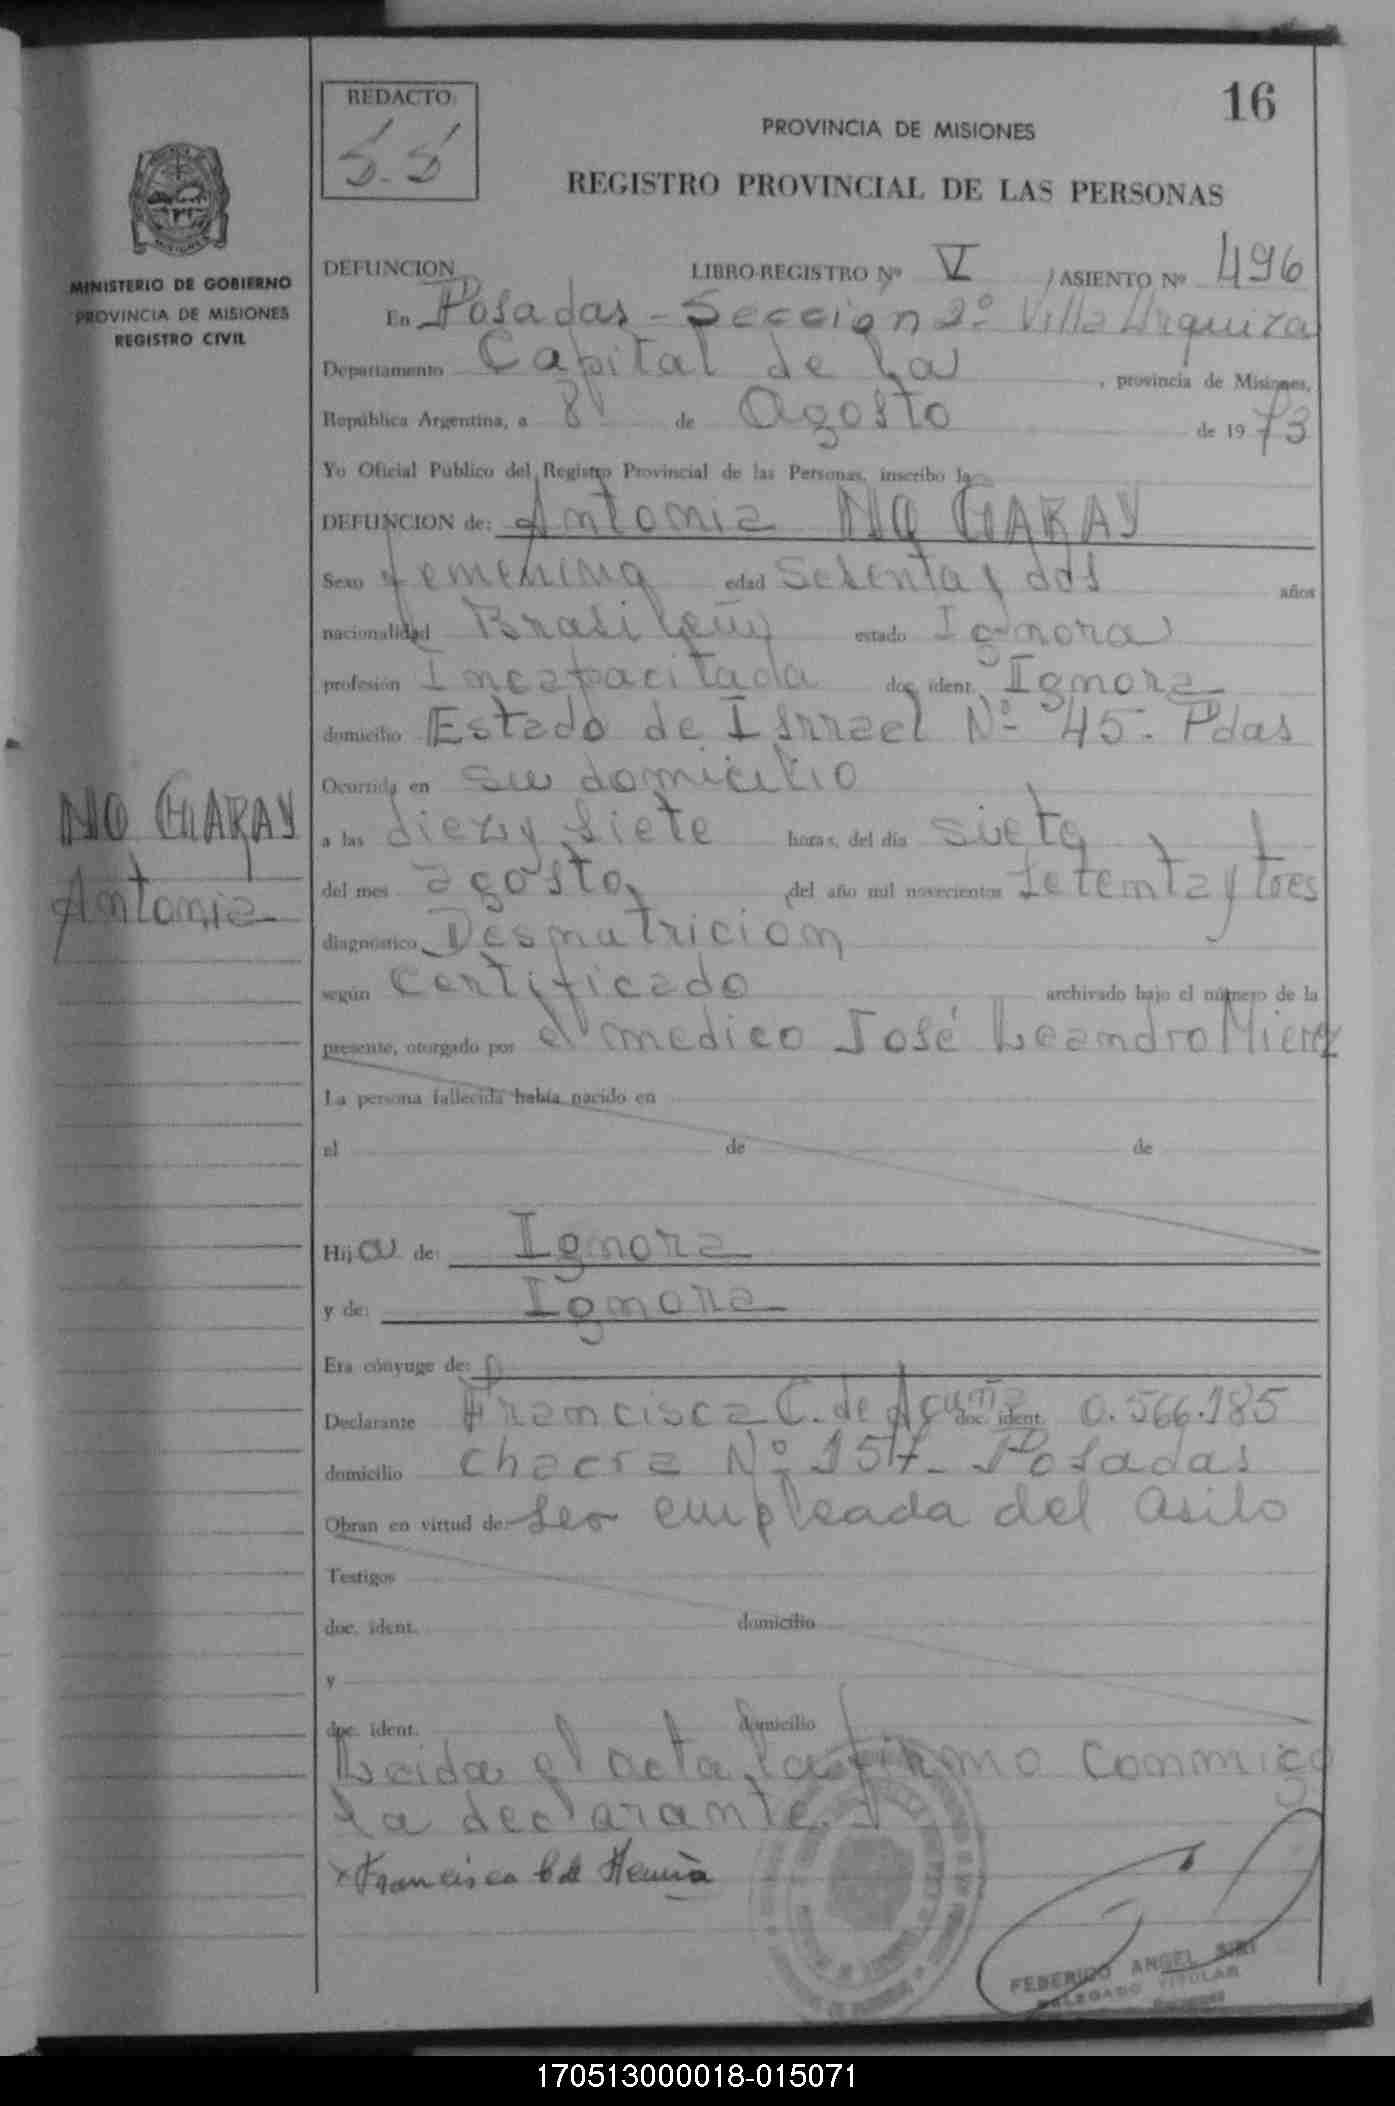 16
REDACTO:
S.S
PROVINCIA DE MISIONES
REGISTRO PROVINCIAL DE LAS PERSONAS
MINISTERIO DE GOBIERNO
PROVINCIA DE MISIONES
REGISTRO CIVIL
DEFUNCION LIBRO-REGISTRO Nº V / ASIENTO Nº 496
En Posadas - Sección 2º Villa Urquiza
Departamento Capital de la , provincia de Misiones,
República Argentina, a 8 de Agosto de 1973
Yo Oficial Público del Registro Provincial de las Personas, inscribo la
DEFUNCION de: Antonia NO GARAY
Sexo femenina edad Sesenta y dos años
nacionalidad Brasileña estado Ignora
profesión Incapacitada doc. ident. Ignora
domicilio Estado de Isrrael Nº 45. Pdas
Ocurrida en su domicilio
NO GARAY
Antonia
a las diez y siete horas, del día siete
del mes agosto, del año mil novecientos setenta y tres
diagnóstico Desnutricion
según Certificado archivado bajo el número de la
presente, otorgado por el medico José Leandro
La persona fallecida había nacido en
el de de
Hija de: Ignora
y de: Ignora
Era cónyuge de:
Declarante Francisca C. de Acuña doc. ident. 0.566.185
domicilio chacra Nº 157- Posadas
Obran en virtud de: ser empleada del asilo
Testigos
doc. ident. domicilio
y
doc. ident. domicilio
Leida el acta la firmo conmigo
la declarante.
x Francisca C de Acuña
FEDERICO ANGEL
DELEGADO TITULAR
170513000018-015071